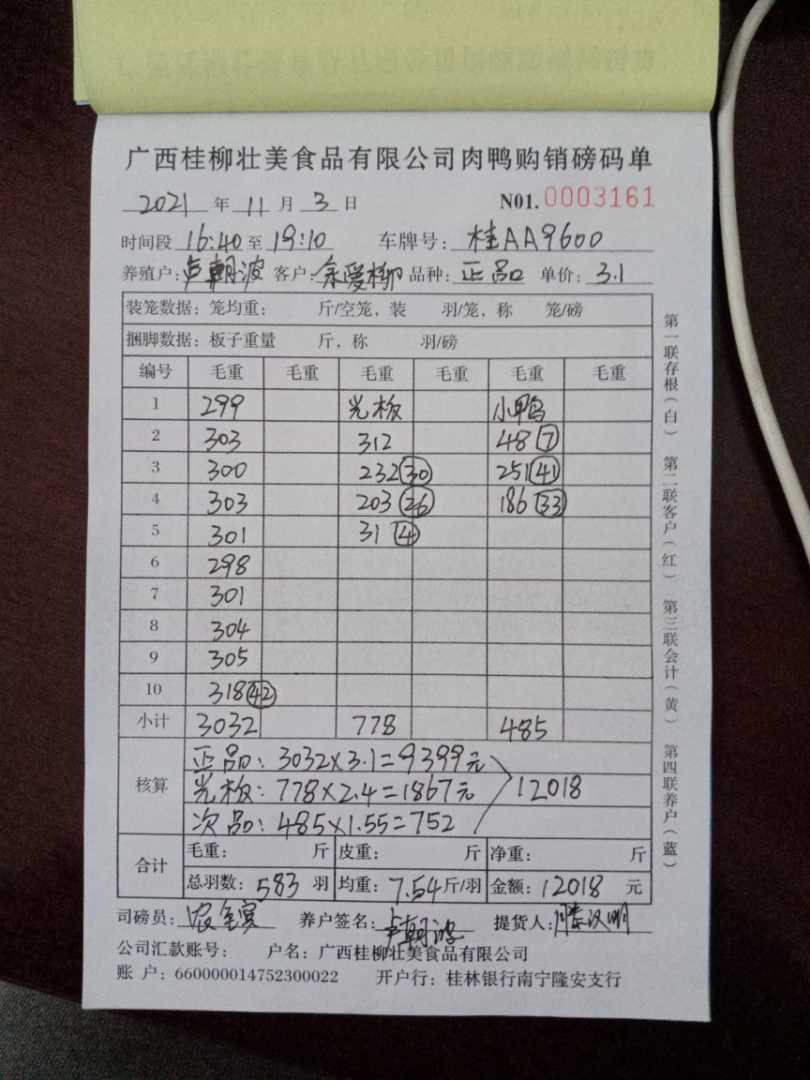 广西桂柳壮美食品有限公司肉鸭购销磅码单
2021 年 11 月 3 日 N01.0003161
时间段 16:40 至 19:10 车牌号: 桂AA9600
养殖户: 卢朝波 客户: 余爱柳 品种: 正品 单价: 3.1
装笼数据: 笼均重: 斤/空笼, 装 羽/笼, 称 笼/磅
捆脚数据: 板子重量 斤, 称 羽/磅
编号 毛重 毛重 毛重 毛重 毛重 毛重
1 299 光板 小鸭
2 303 312 48 7
3 300 232 30 251 41
4 303 203 26 186 33
5 301 31 4
6 298
7 301
8 304
9 305
10 318 42
小计 3032 778 485
核算
正品: 3032×3.1=9399元
光板: 778×2.4=1867元 12018
次品: 485×1.55=752
合计
毛重: 斤 皮重: 斤 净重: 斤
总羽数: 583 羽 均重: 7.54 斤/羽 金额: 12018 元
司磅员: 农 养户签名: 卢朝波 提货人: 明
公司汇款账号: 户名: 广西桂柳壮美食品有限公司
账 户: 660000014752300022 开户行: 桂林银行南宁隆安支行
第一联存根(白) 第二联客户(红) 第三联会计(黄) 第四联养户(蓝)